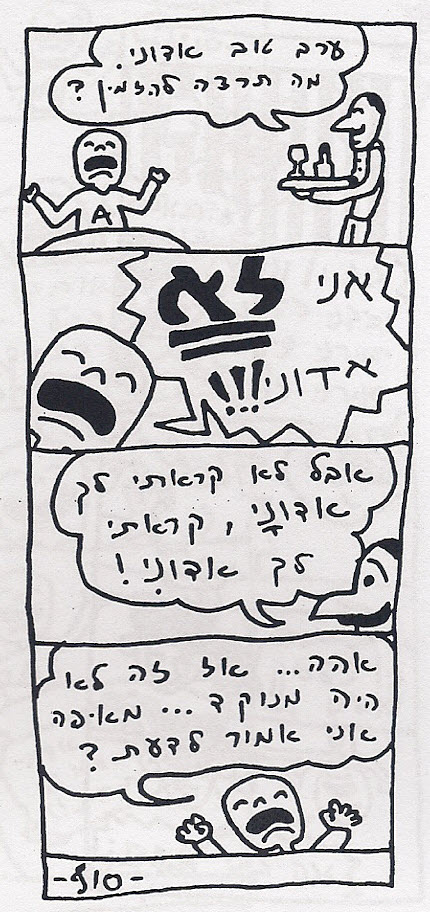 ערב טוב אדוני.
מה תרצה להזמין?
A
אני לא
אדוני!!!
אבל לא קראתי לך
אדונָי, קראתי
לך אדונִי!
אהה... אז זה לא
היה מנוקד... מאיפה
אני אמור לדעת?
-סוף-